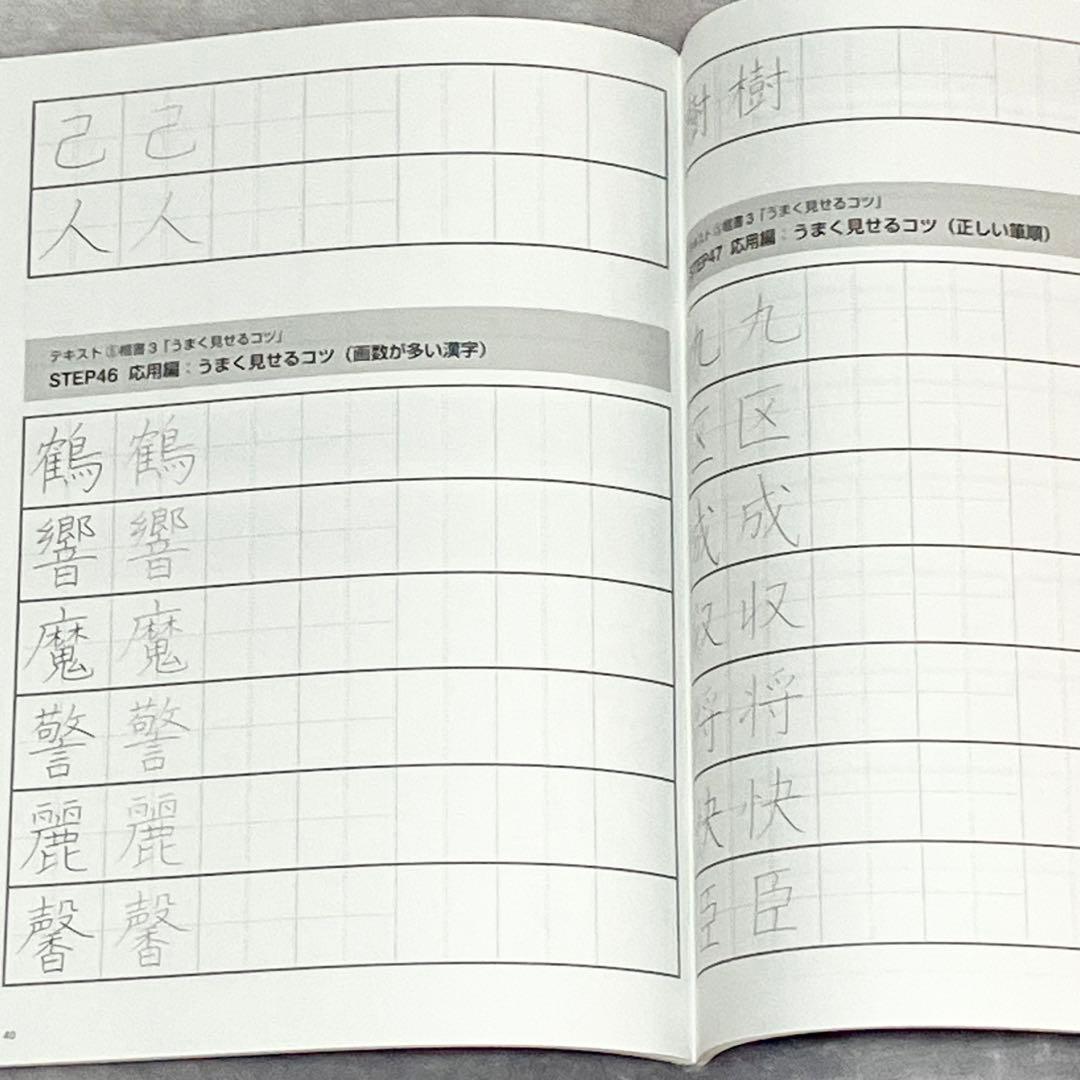 己 己
人 人
テキスト ⑤楷書3「うまく見せるコツ」
STEP46 応用編：うまく見せるコツ（画数が多い漢字）
鶴 鶴
響 響
魔 魔
警 警
麗 麗
馨 馨
40
樹 樹
テキスト ⑤楷書3「うまく見せるコツ」
STEP47 応用編：うまく見せるコツ（正しい筆順）
九 九
区 区
成 成
収 収
将 将
快 快
臣 臣